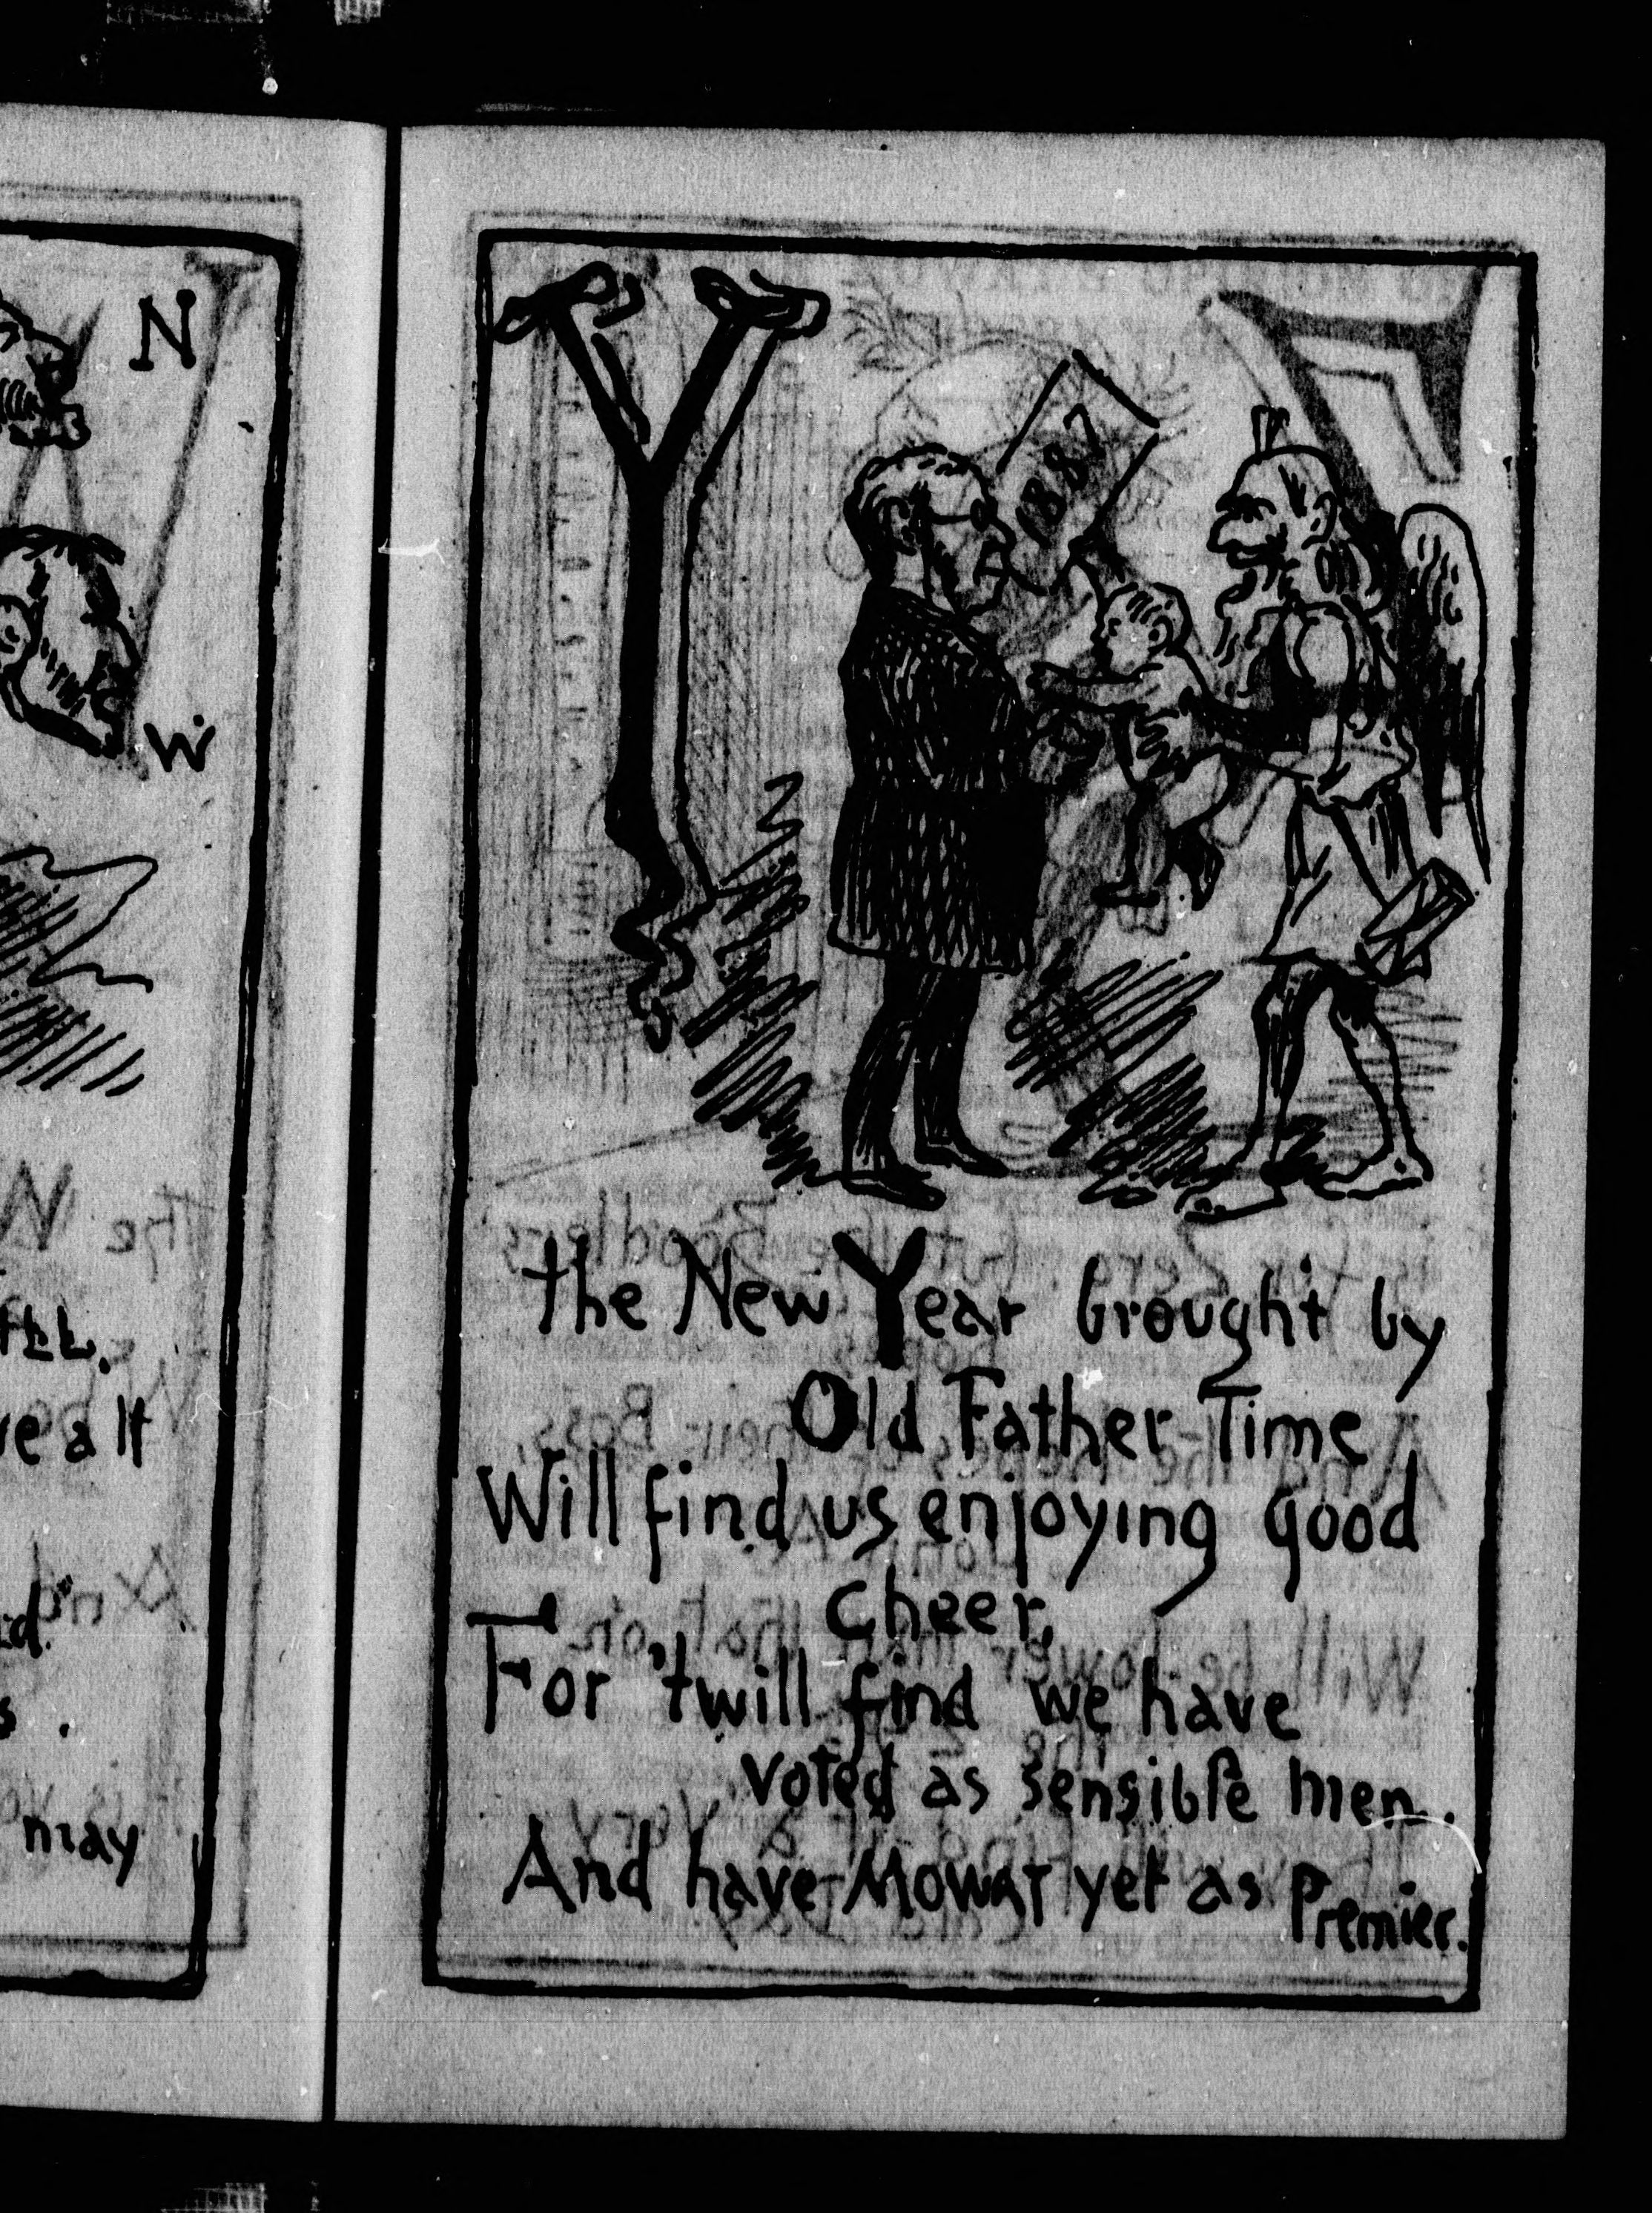 N
W
ve a lt
may
Y
1887
the New Year brought by
Old Father Time
Will find us enjoying good
cheer,
For 'twill find we have
voted as sensible men.
And have Mowat yet as Premier.